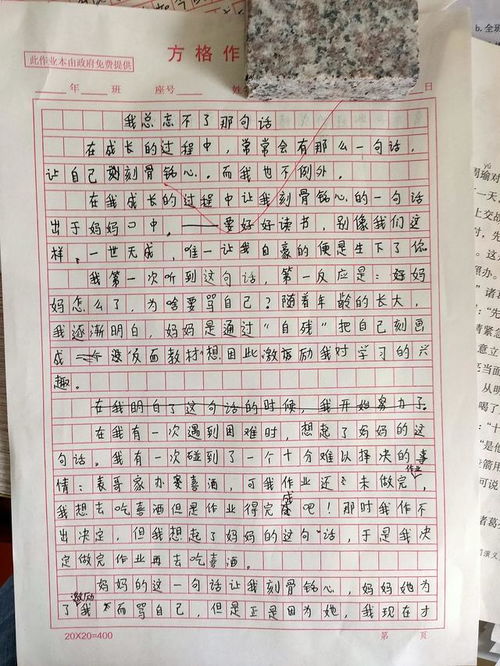 此作业本由政府免费提供
方格作
年 班 座号 日
我总忘不了那句话
在成长的过程中，常常会有那么一句话，
让自己刻骨铭心。而我也不例外。
在我成长的过程中让我刻骨铭心的一句话
出于妈妈口中。——要好好读书，别像我们这
样，一世无成，唯一让我自豪的便是生下了你
我第一次听到这句话，第一反应是：妈
妈怎么了，为啥要骂自己？随着年龄的长大，
我逐渐明白，妈妈是通过“自残”把自己刻画
成一反面教材想因此激励我对学习的兴
趣。
在我明白了这句话的时候，我开始努力了。
在我有一次遇到困难时，想起了妈妈的这
句话。我有一次碰到了一个十分难以择决的事
情：表哥家办宴喜酒，可我作业还未做完，
我想去吃喜酒但是作业得完成吧！那时我作不
出决定，但我想起了妈妈的这句话，于是我决
定做完作业再去吃喜酒。
妈妈的这一句话让我刻骨铭心，妈妈她为
了激励我而骂自己，但是正是因为她，我现在才
20X20=400
第 页
b.全班
周瑜对
一天，
上交战